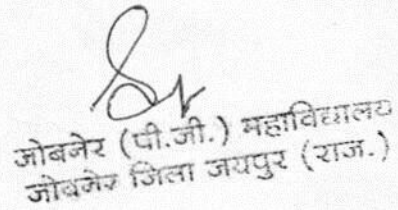 जोबनेर (पी.जी.) महाविद्यालय
जोबनेर जिला जयपुर (राज.)